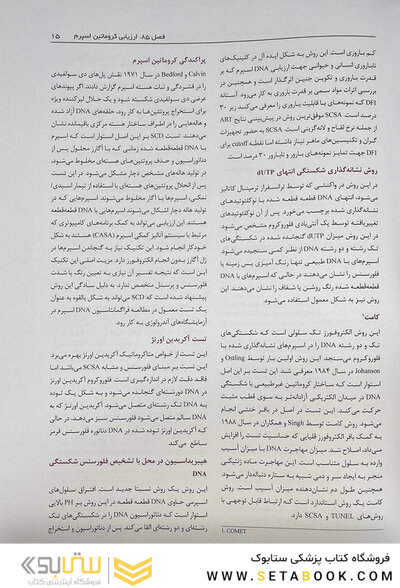 فصل ۸۵. ارزیابی کروماتین اسپرم ۱۵
کم باروری است. این روش به شکل ایده آل در کلینیک‌های
ناباروری انسانی و حیوانی جهت ارزیابی DNA اسپرم که بر
قدرت باروری و تکوین جنین اثرگذار است و همچنین در
بررسی اثرات مواد سمی بر قدرت باروری به کار می‌رود. آستانه
DFI که نمونه‌های با قابلیت باروری را معرفی می‌کند زیر ۳۰
درصد است. SCSA موفق‌ترین روش در پیش‌بینی نتایج ART
از جمله نرخ لقاح و لانه‌گزینی است. SCSA به حضور تجهیزات
گران و تکنیسین‌های ماهر نیاز داشته اما نقطه cutoff برای
DFI جهت تمایز نمونه‌های بارور و نابارور ۳۰ درصد است.
روش نشانه‌گذاری شکستگی انتهای dUTP
در این روش در واکنشی که توسط ترانسفراز ترمینال کاتالیز
می‌شود، انتهای DNA قطعه قطعه شده با نوکلئوتیدهای
نشانه‌گذاری شده برچسب می‌خورد. پس از آن نوکلئوتیدهای
تغییریافته توسط یک آنتی‌بادی فلوروکروم مشخص می‌شود.
در این روش میزان dUTP گنجانده شده در شکستگی‌های
تک رشته و دو رشته DNA از نظر کمی سنجیده می‌شود.
اسپرم‌های با DNA طبیعی تنها رنگ آمیزی پس زمینه یا
فلورسنس را نشان می‌دهند در حالی که اسپرم‌های با DNA
قطعه‌قطعه شده رنگ روشن یا شفاف را نشان می‌دهند. این
روش نیز به شکل معمول استفاده می‌شود.
کامت۱
این روش الکتروفورز تک سلولی است که شکستگی‌های
تک و دو رشته DNA را در اسپرم‌های نشانه‌گذاری شده با
فلوروکروم می‌سنجد. این روش اولین بار توسط Ostling و
Johanson در سال ۱۹۸۴ معرفی شد. این روش بر این اصل
استوار است که ساختار کروماتین غیرطبیعی با شکستگی
DNA در میدان الکتریکی آزادانه‌تر به سوی قطب مثبت
حرکت می‌کند. این تست در اصل در بافر خنثی انجام
می‌شود. روش کامت توسط Singh و همکاران در سال ۱۹۸۸
به کمک بافر الکتروفورز قلیایی که حساسیت تست را افزایش
می‌داد، اصلاح شد. میزان مهاجرت DNA با میزان آسیب
وارده به سلول متناسب است. این مهاجرت ماده ژنتیکی
منجر به ایجاد سر و دمی شبیه به ستاره دنباله‌دار می‌شود.
همچنین طول دم نشان‌دهنده میزان آسیب است. روش
کامت روش نسبتا ساده‌ای است که ارتباط قابل توجهی با
روش‌های TUNEL و SCSA دارد.
1. COMET
پراکندگی کروماتین اسپرم
Calvin و Bedford در سال ۱۹۷۱ نقش پل‌های دی سولفیدی
را در فشردگی و ثبات هسته اسپرم گزارش دادند. اگر پیوندهای
عرضی دی سولفیدی شکسته شود و یک حلال لیزکننده ویژه
برای استخراج پروتئین‌ها به کار رود، حلقه‌های DNA آزاد شده
و هاله‌هایی را در اطراف ساختار هسته مرکزی باقیمانده نشان
می‌دهند. تست SCD بر این اصل استوار است که اسپرم
با DNA قطعه‌قطعه شده زمانی که با آگارز محلول پس از
دناتوراسیون و حذف پروتئین‌های هسته‌ای مخلوط می‌شود،
در تولید هاله‌های مشخص دچار مشکل می‌شود. در این تست
پس از انحلال پروتئین‌های هسته‌ای با استفاده از تیمار اسیدی/
نمکی، اسپرم‌ها با آگار مخلوط می‌شوند. اسپرم‌هایی که در
تولید هاله دچار اشکال می‌شوند اسپرم‌هایی با DNA قطعه‌قطعه
هستند. این ارزیابی می‌تواند به کمک برنامه‌های کامپیوتری که
مرتبط با سیستم آنالیز کمکی اسپرم (CASA) هستند به شکل
خودکار انجام شود. این تکنیک نیاز به گنجاندن اسپرم‌ها در
ژل آگارز بدون انجام الکتروفورز دارد. مزیت اصلی این تکنیک
این است که نتیجه تفسیر آن نیازی به تعیین رنگ یا شدت
فلورسنس و پرسنل متخصص ندارد. به دلیل سادگی این روش
پیشنهاد شده است که SCD می‌تواند به شکل بالقوه به عنوان
یک تست معمول در مطالعه فراگمانتاسیون DNA اسپرم در
آزمایشگاه‌های آندرولوژی به کار رود.
تست آکریدین اورنژ
این تست از خواص متاکروماتیک آکریدین اورنژ بهره می‌برد.
این تست بر مبنای فلورسنس و مشابه SCSA می‌باشد اما
فاقد دقت لازم در اندازه‌گیری است. فلوروکروم آکریدین اورنژ
در DNA دورشته‌ای گنجانده می‌شود و به شکل یک توده
به DNA تک رشته‌ای متصل می‌شود. آکریدین اورنژ که به
DNA سالم متصل می‌شود فلورسنس سبز می‌دهد، در حالی
که آکریدین اورنژ توده شده در DNA دناتوره فلورسنس قرمز
ساطع می‌کند.
هیبریداسیون در محل با تشخیص فلورسنس شکستگی
DNA
این روش یک روش نسبتا جدید است. افتراق سلول‌های
اسپرمی حاوی DNA قطعه قطعه در این روش بر PH بالایی
استوار است که دناتوراسیون DNA را در شکستگی‌های تک
رشته‌ای و دو رشته‌ای القا می‌کند. پس از دناتوراسیون و استخراج
ستابوک
فروشگاه اینترنتی کتاب
فروشگاه کتاب پزشکی ستابوک
WWW.SETABOOK.COM